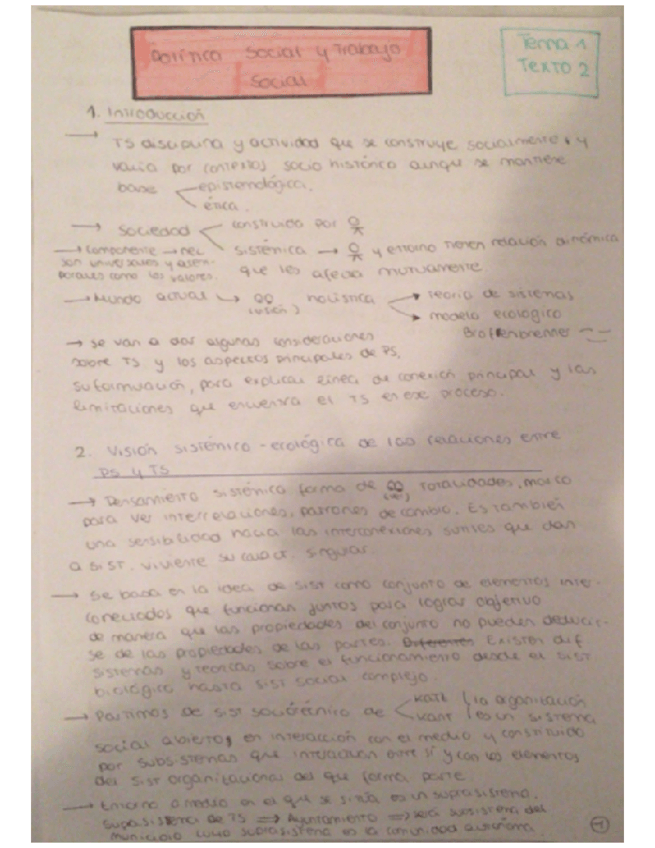 Política Social y Trabajo
Social
Tema 1
Texto 2
1. Introducción
→ TS disciplina y actividad que se construye socialmente, y
varía por contextos socio histórico aunque se mantiene
base epistemológica.
ética.
→ Sociedad construida por
→ componente → nec. sistémica → y entorno tienen relación dinámica
son universales y atem-
porales como los valores. que les afecta mutuamente
→ Mundo actual → holística → teoría de sistemas
(visión) → modelo ecológico
Broffenbrenner
→ Se van a dar algunas consideraciones
sobre TS y los aspectos principales de PS,
su formulación, para explicar línea de conexión principal y las
limitaciones que encuentra el TS en ese proceso.
2. Visión sistémico-ecológica de las relaciones entre
PS y TS
→ Pensamiento sistémico forma de totalidades, marco
para ver interrelaciones, patrones de cambio. Es también
una sensibilidad hacia las interconexiones sutiles que dan
a sist. viviente su caract. singular.
→ Se basa en la idea de sist como conjunto de elementos inter-
conectados que funcionan juntos para lograr objetivo
de manera que las propiedades del conjunto no pueden deducir-
se de las propiedades de las partes. Diferentes Existen dif
sistemas y teorías sobre el funcionamiento desde el sist.
biológico hasta sist social complejo.
→ Partimos de sist sociotécnico de Katz la organización
Kant es un sistema
social abierto, en interacción con el medio y constituido
por subsistemas que interactúan entre sí y con los elementos
del sist organizacional del que forma parte.
→ Entorno o medio en el que se sitúa es un suprasistema.
Suprasistema de TS => Ayuntamiento => será subsistema del
municipio cuyo suprasistema es la comunidad autónoma.
1